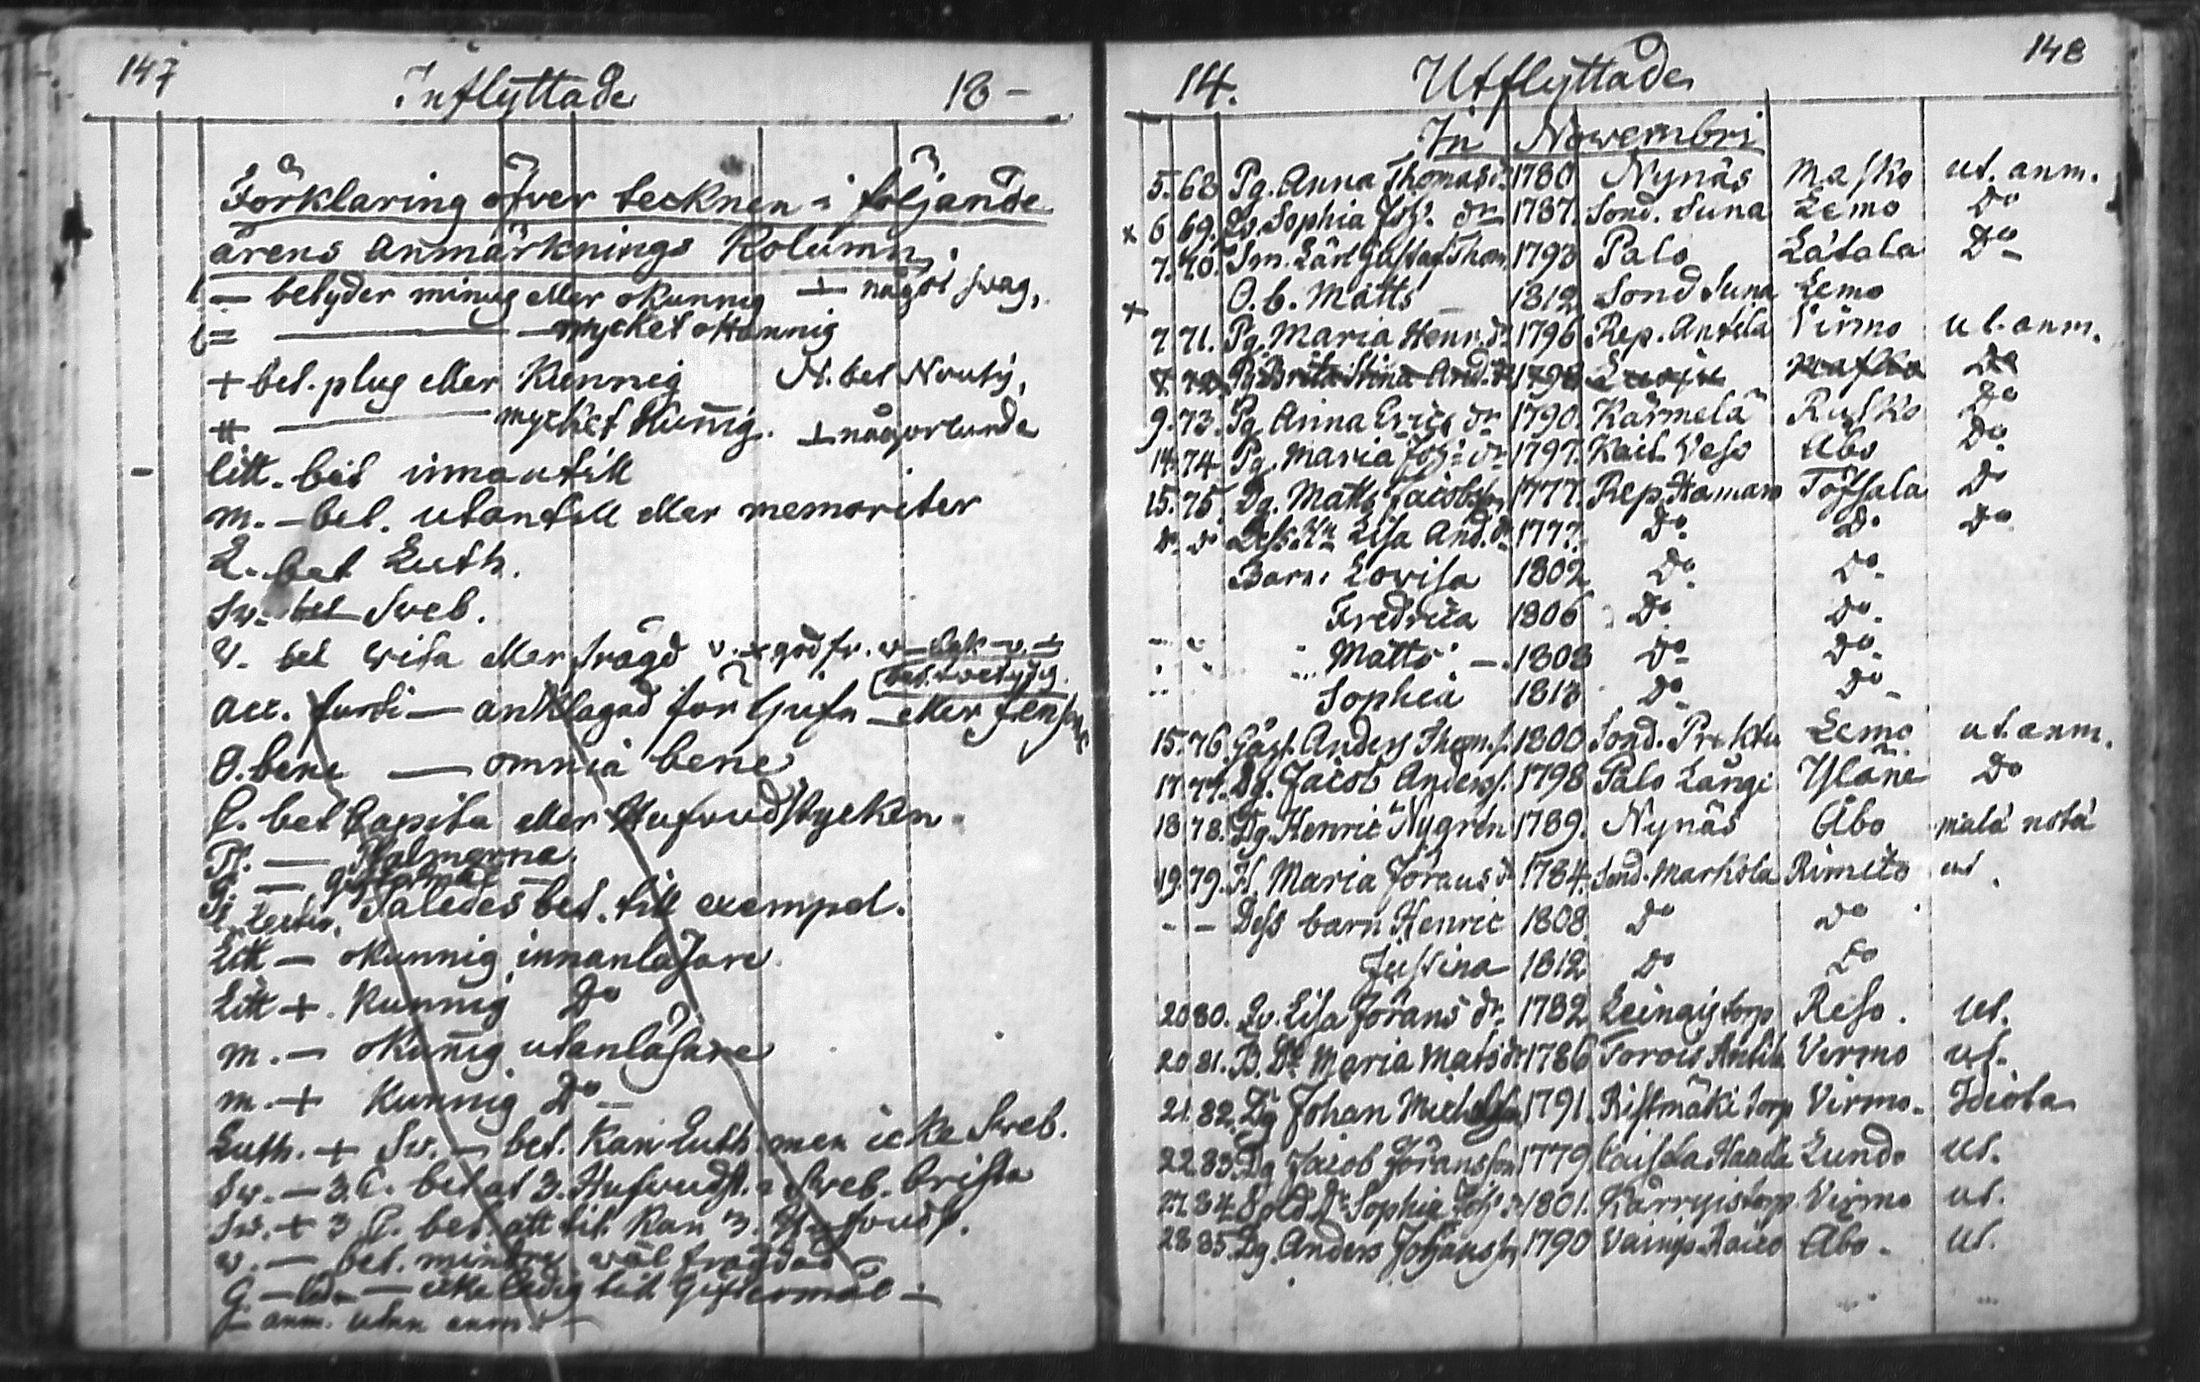 147 Inflyttade 18 -
Förklaring öfver tecknen i följande
årens anmärknings Kolumn.
— betyder minus eller okunnig ∸ något swag,
= ——— mycket okunnig
+ bet. plus eller Kunnig N. bet Noutý,
# ——— mycket Kun̄ig. ⊥ någorlunda
litt. bet innantill
m. — bet. utantill eller memoriter
L. bet Luth.
Sw. bet Sveb.
V. bet wisa eller frågd v. + god fr.
bet. twetydig.
acc. furti — anklagad för tjufn — eller
O. bene — omnia bene
C. bet Capita eller Hufvudstycken.
Ps. — Psalmerna
G. — giftermål —
Således bet. till exempel.
Litt — okunnig innanläsare
Litt +. Kunnig Do
m. — okun̄ig utanläsare
m. + Kunnig Do —
Luth. + Sv. — bet. Kan Luth. men icke Sveb.
Sw. — 3. C. bet at 3. Hufvudst. a Sveb. brista
Sw. + 3 C. bet. att till Kan 3. Hufvudst.
v. — bet. mindre wäl frågdad
G. — led. — icke ledig till Giftermål —
anm. utan anm.
14. Utflyttade 148
In Novembri
5. 68 Pg. Anna Thomasdr 1780 Nynäs Masko ut. anm.
x 6 69. Lv. Sophia Joh. dr 1787. Sond. Suna Lemo Do
7. 70. Sm. Lärl Gustaf Thom 1793 Palo Låtala Do
x O. b. Matts 1812 Sond Suna Lemo
7 71. Pg. Maria Henr. dr 1796 Rep. Antila Virmo ut. anm.
8 72. Pg. Brita Stina And. dr 1798 Masko Do
9. 73. Pg. Anna Erics dr 1790. Kärmelä Rusko Do
14. 74 Pg. Maria Joh. dr 1797. Kait. Veso Åbo Do
15. 75. Dg. Matts Jacobsson 1777. Rep. Hamaro Töfsala Do
Do Do Dess Hu Lisa And. dr 1777. Do Do Do
Barn: Lovisa 1802 Do Do
Fredrica 1806 Do Do
Matts 1808 Do Do
Sophia 1813 Do Do
15. 76. Gäst. Anders Thom. s. 1800 Sond. Prektu Lemo ut anm.
17. 77. Dg. Jacob Anderss. 1798 Palo Långi Yläne Do
18 78. Dg. Henric Nygrén 1789. Nynäs Åbo mala nota
19. 79. H. Maria Jörans dr 1784. Sond. Markola Rimito ut
- - Dess barn Henric 1808 Do Do
Justina 1812 Do Do
20 80. Lv. Lisa Jörans dr. 1782 Leingis torp Reso. ut.
20 81. B. Dr Maria Mats dr 1786 Torois Antila Virmo ut.
21. 82. Dg Johan Michelss 1791. Ristmäki torp Virmo. Idiota
22 83. Dg Jacob Jöransson 1779. Lundo ut.
84 Sold. Dr Sophia Joh. dr 1801. Kärryistorp Virmo ut.
28 85. Dg. Anders Johanss 1790 Åbo. ut.